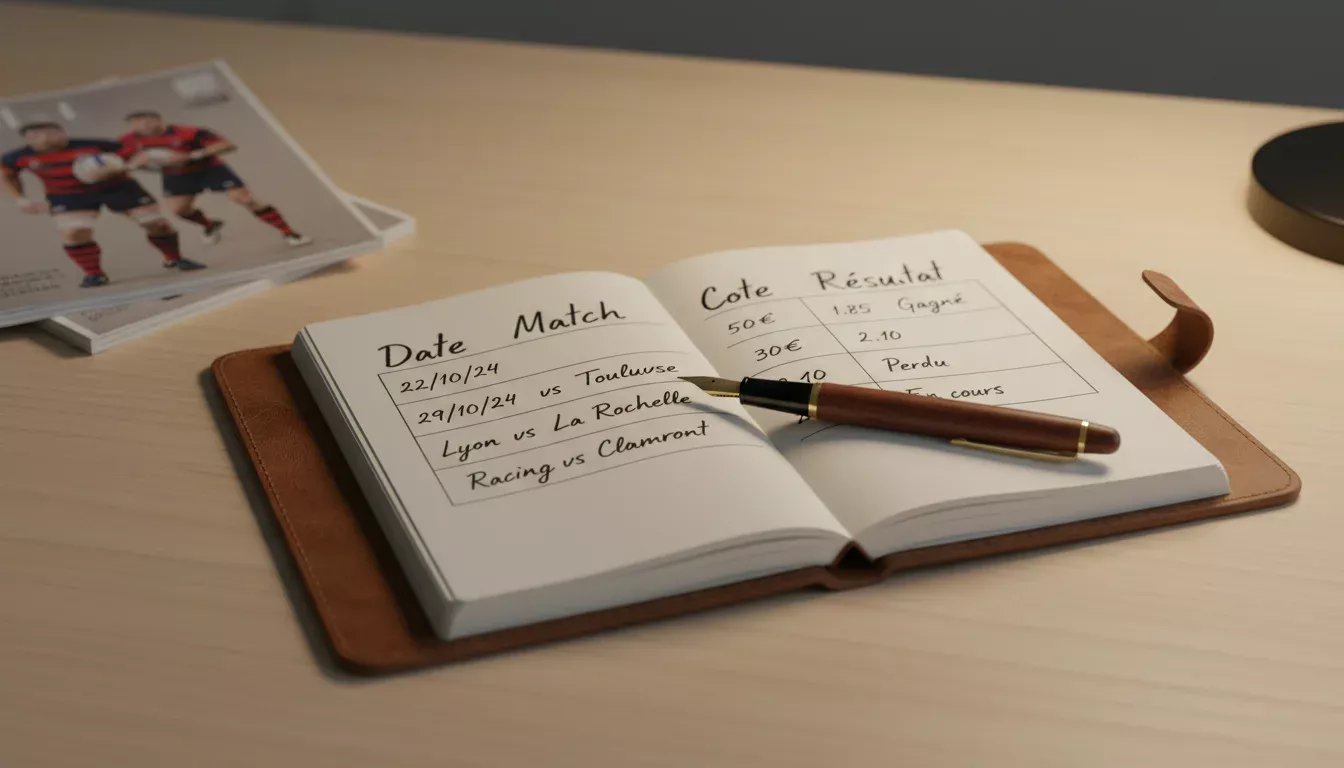 Date Match
22/10/24
29/10/24 vs Touluuse
Lyon vs La Rochelle
Racing vs Clamront
Cote Résultat
50€ 1.85 Gagné
30€ 2.10
10 Perdu
En cours